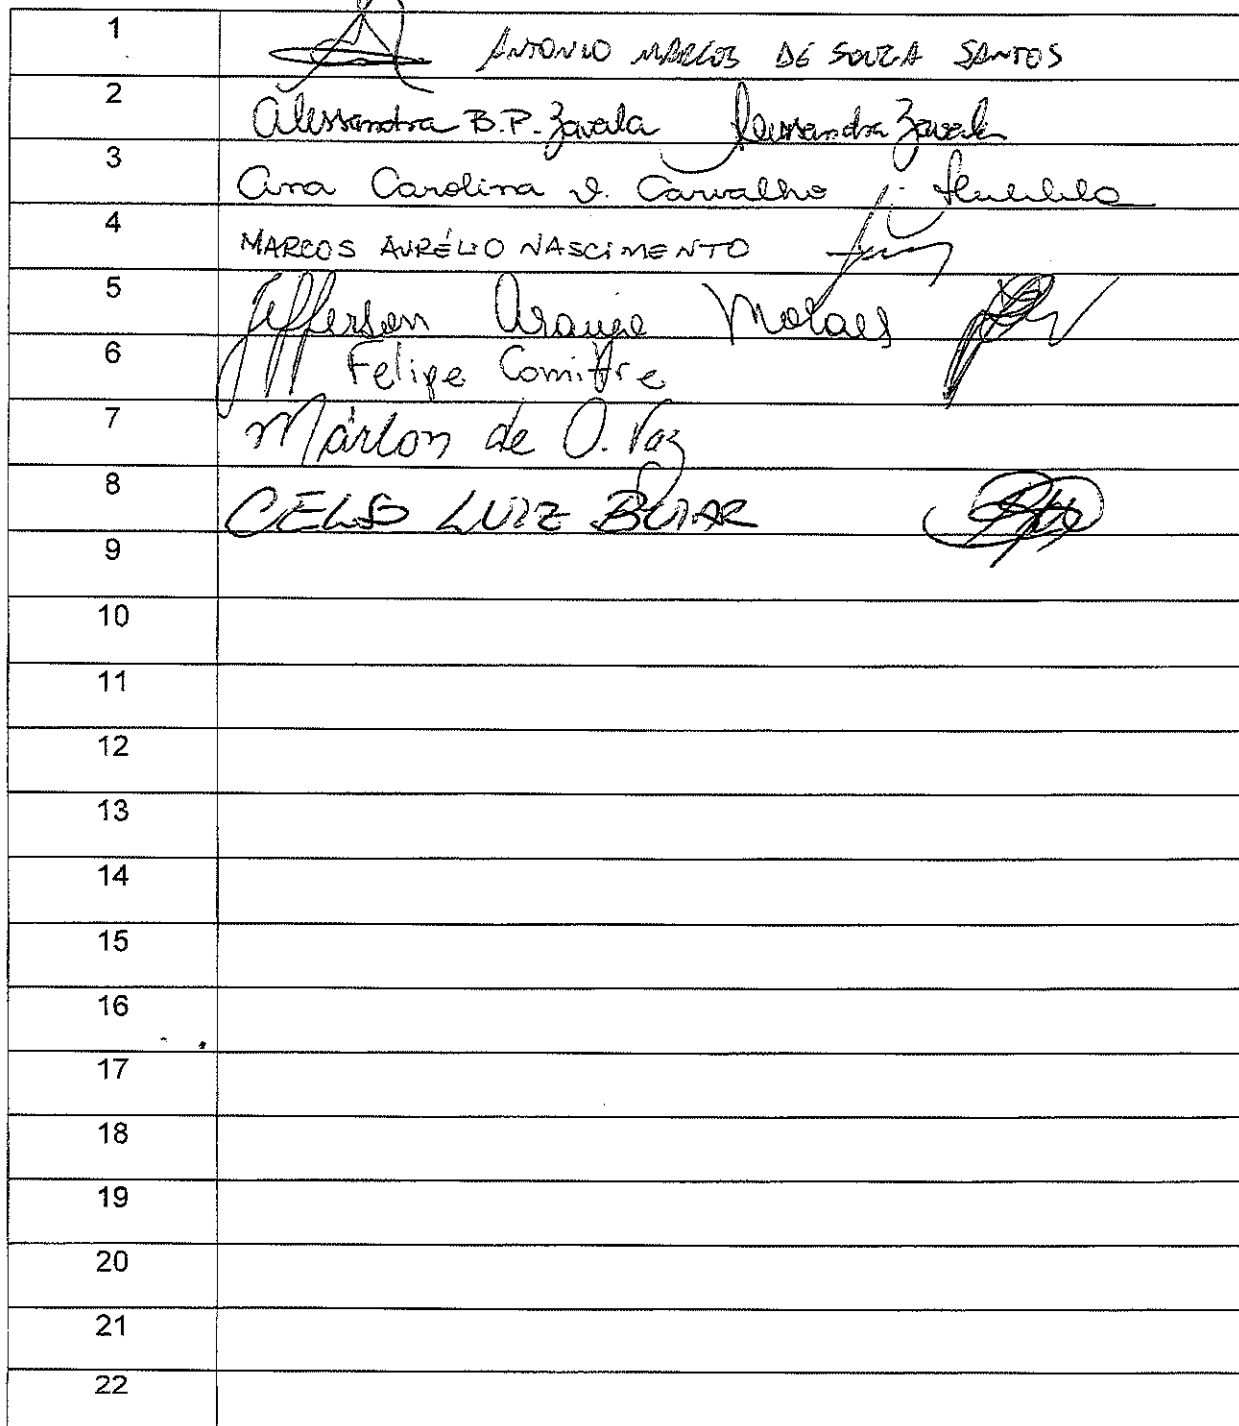 1 ANTONIO MARCOS DE SOUZA SANTOS
2 Alessandra B.P. Zavala Alessandra Zavala
3 Ana Carolina V. Carvalho
4 MARCOS AURÉLIO NASCIMENTO
5 Jefferson Araujo Moraes
6 Felipe Comitre
7 Márlon de O. Vaz
8 CELSO LUIZ
9
10
11
12
13
14
15
16
17
18
19
20
21
22